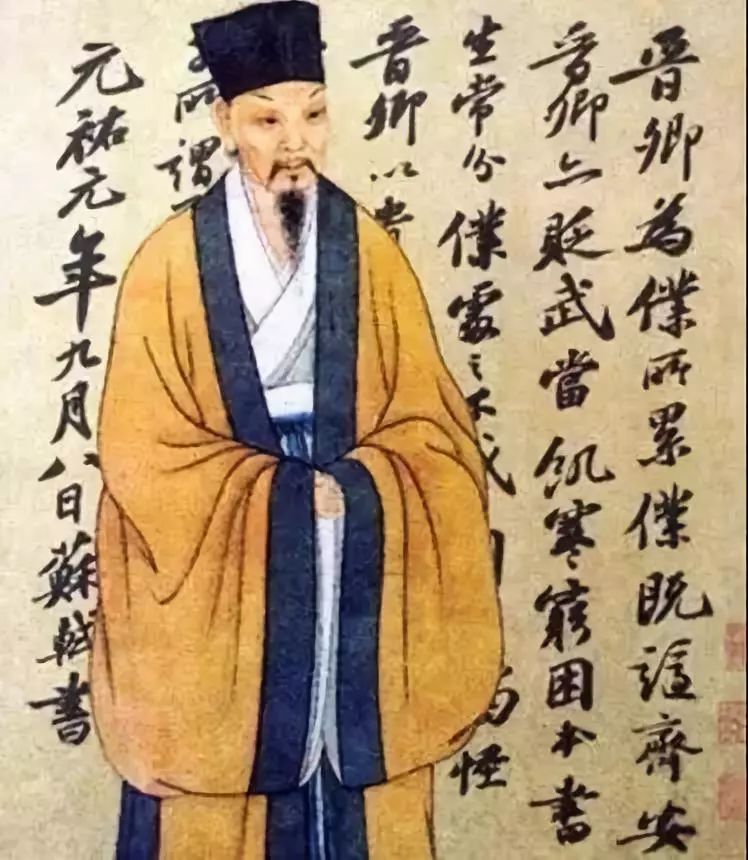 晉卿為僕所累僕既謫齊安
晉卿亦貶武當飢寒窮困本書
生常分僕處之不戚 怪
晉卿以貴
所謂
元祐元年九月八日蘇軾書